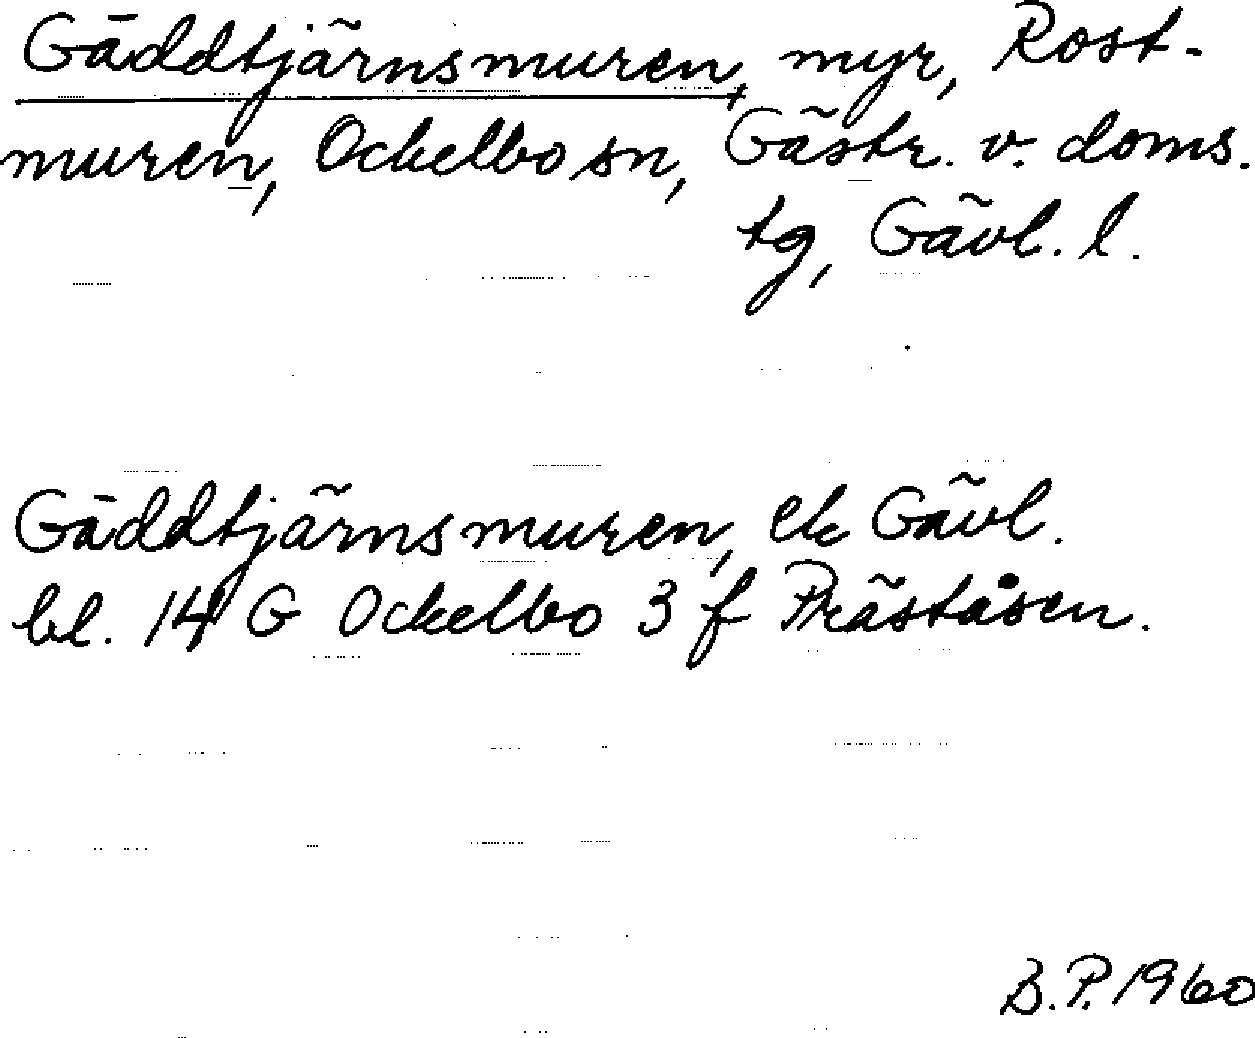 Gäddtjärnsmuren, myr, Rost-
muren, Ockelbo sn, Gästr. v. doms.
tg, Gävl. l.
Gäddtjärnsmuren, ek Gävl.
bl. 14 G Ockelbo 3 f Präståsen.
B.P. 1960